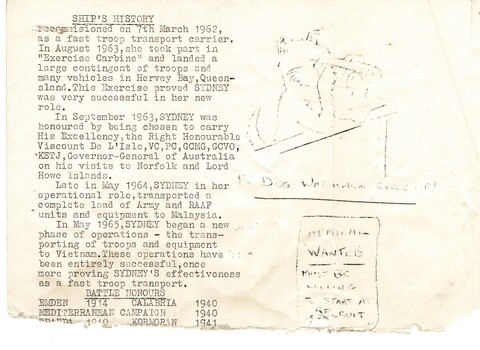 SHIP'S HISTORY
recommisioned on 7th March 1962,
as a fast troop transport carrier.
In August 1963,she took part in
"Exercise Carbine" and landed a
large contingent of troops and
many vehicles in Hervey Bay,Queen-
sland.This Exercise proved SYDNEY
was very successful in her new
role.
In September 1963,SYDNEY was
honoured by being chosen to carry
His Excellency,the Right Honourable
Viscount De L'Isle,VC,PC,GCMG,GCVO,
KSTJ,Governor-General of Australia
on his visits to Norfolk and Lord
Howe Islands.
Late in May 1964,SYDNEY in her
operational role,transported a
complete load of Army and RAAF
units and equipment to Malaysia.
In May 1965,SYDNEY began a new
phase of operations - the trans-
porting of troops and equipment
to Vietnam.These operations have
been entirely successful,once
more proving SYDNEY'S effectiveness
as a fast troop transport.
BATTLE HONOURS
EMDEN 1914 CALABRIA 1940
MEDITERRANEAN CAMPAIGN 1940
SPADDA 1940 KORMORAN 1941
DOG
WANTED
MUST BE
WILLING
TO START AS
RECRUIT